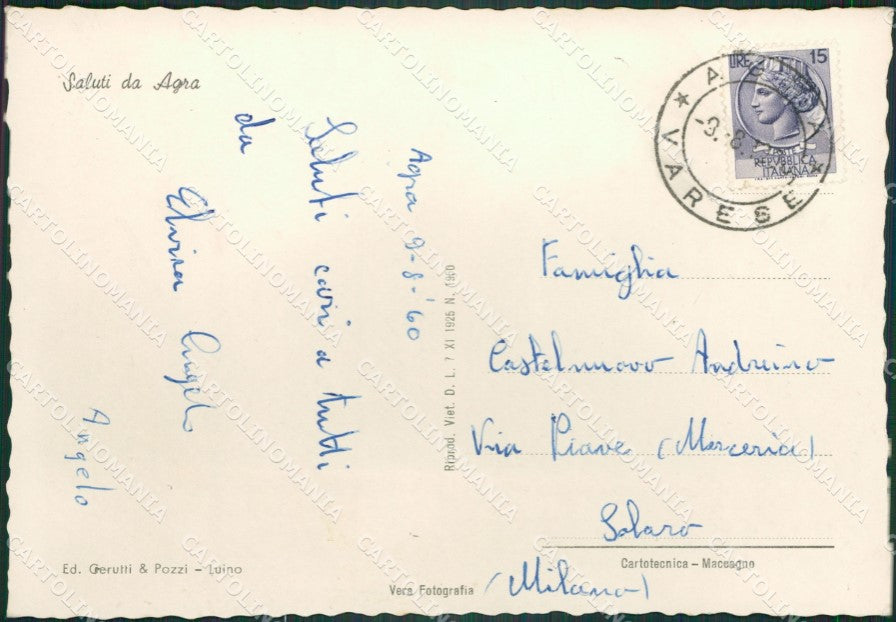 Saluti da Agra
Agra 9-8-'60
Saluti cari a tutti
da
Elvira
Angelo
Ed. Gerutti & Pozzi - Luino
Riprod. Viet. D. L. 7 XI 1925 N. 1960
Vera Fotografia
LIRE 15
REPVBBLICA
ITALIANA
VARESE
Famiglia
Castelnuovo Andreino
Via Piave (Merceria)
Solaro
(Milano)
Cartotecnica - Maccagno
CARTOLINOMANIA